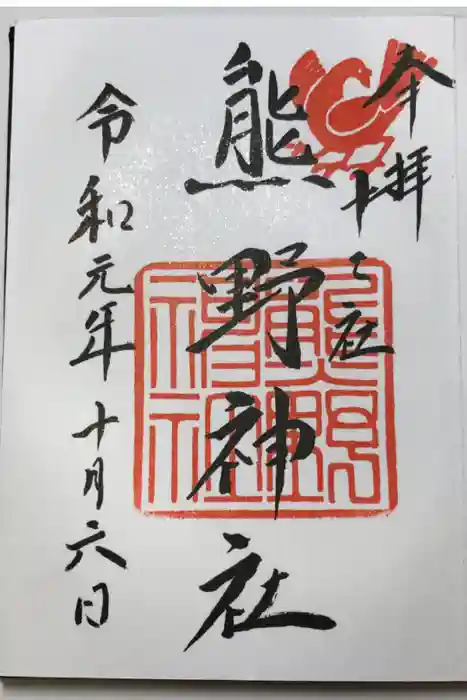 奉拝
十二社
熊野神社
令和元年十月六日